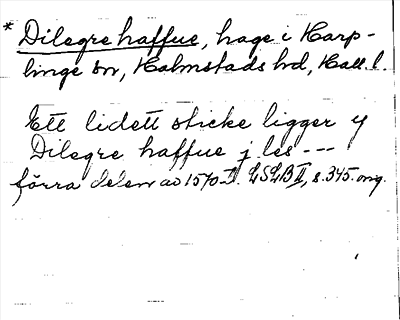 * Dilegre haffue, hage i Harp-
linge sn, Halmstads hd, Hall. l.
Ett lidett sticke ligger y
Dilegre haffue j les ---
förra delen av 1570-t. LSLB II, s. 345. orig.